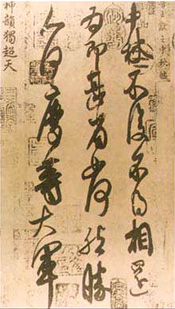 中秋不復不得相還
為即甚省如何然勝
人何慶等大軍
神韻獨超天